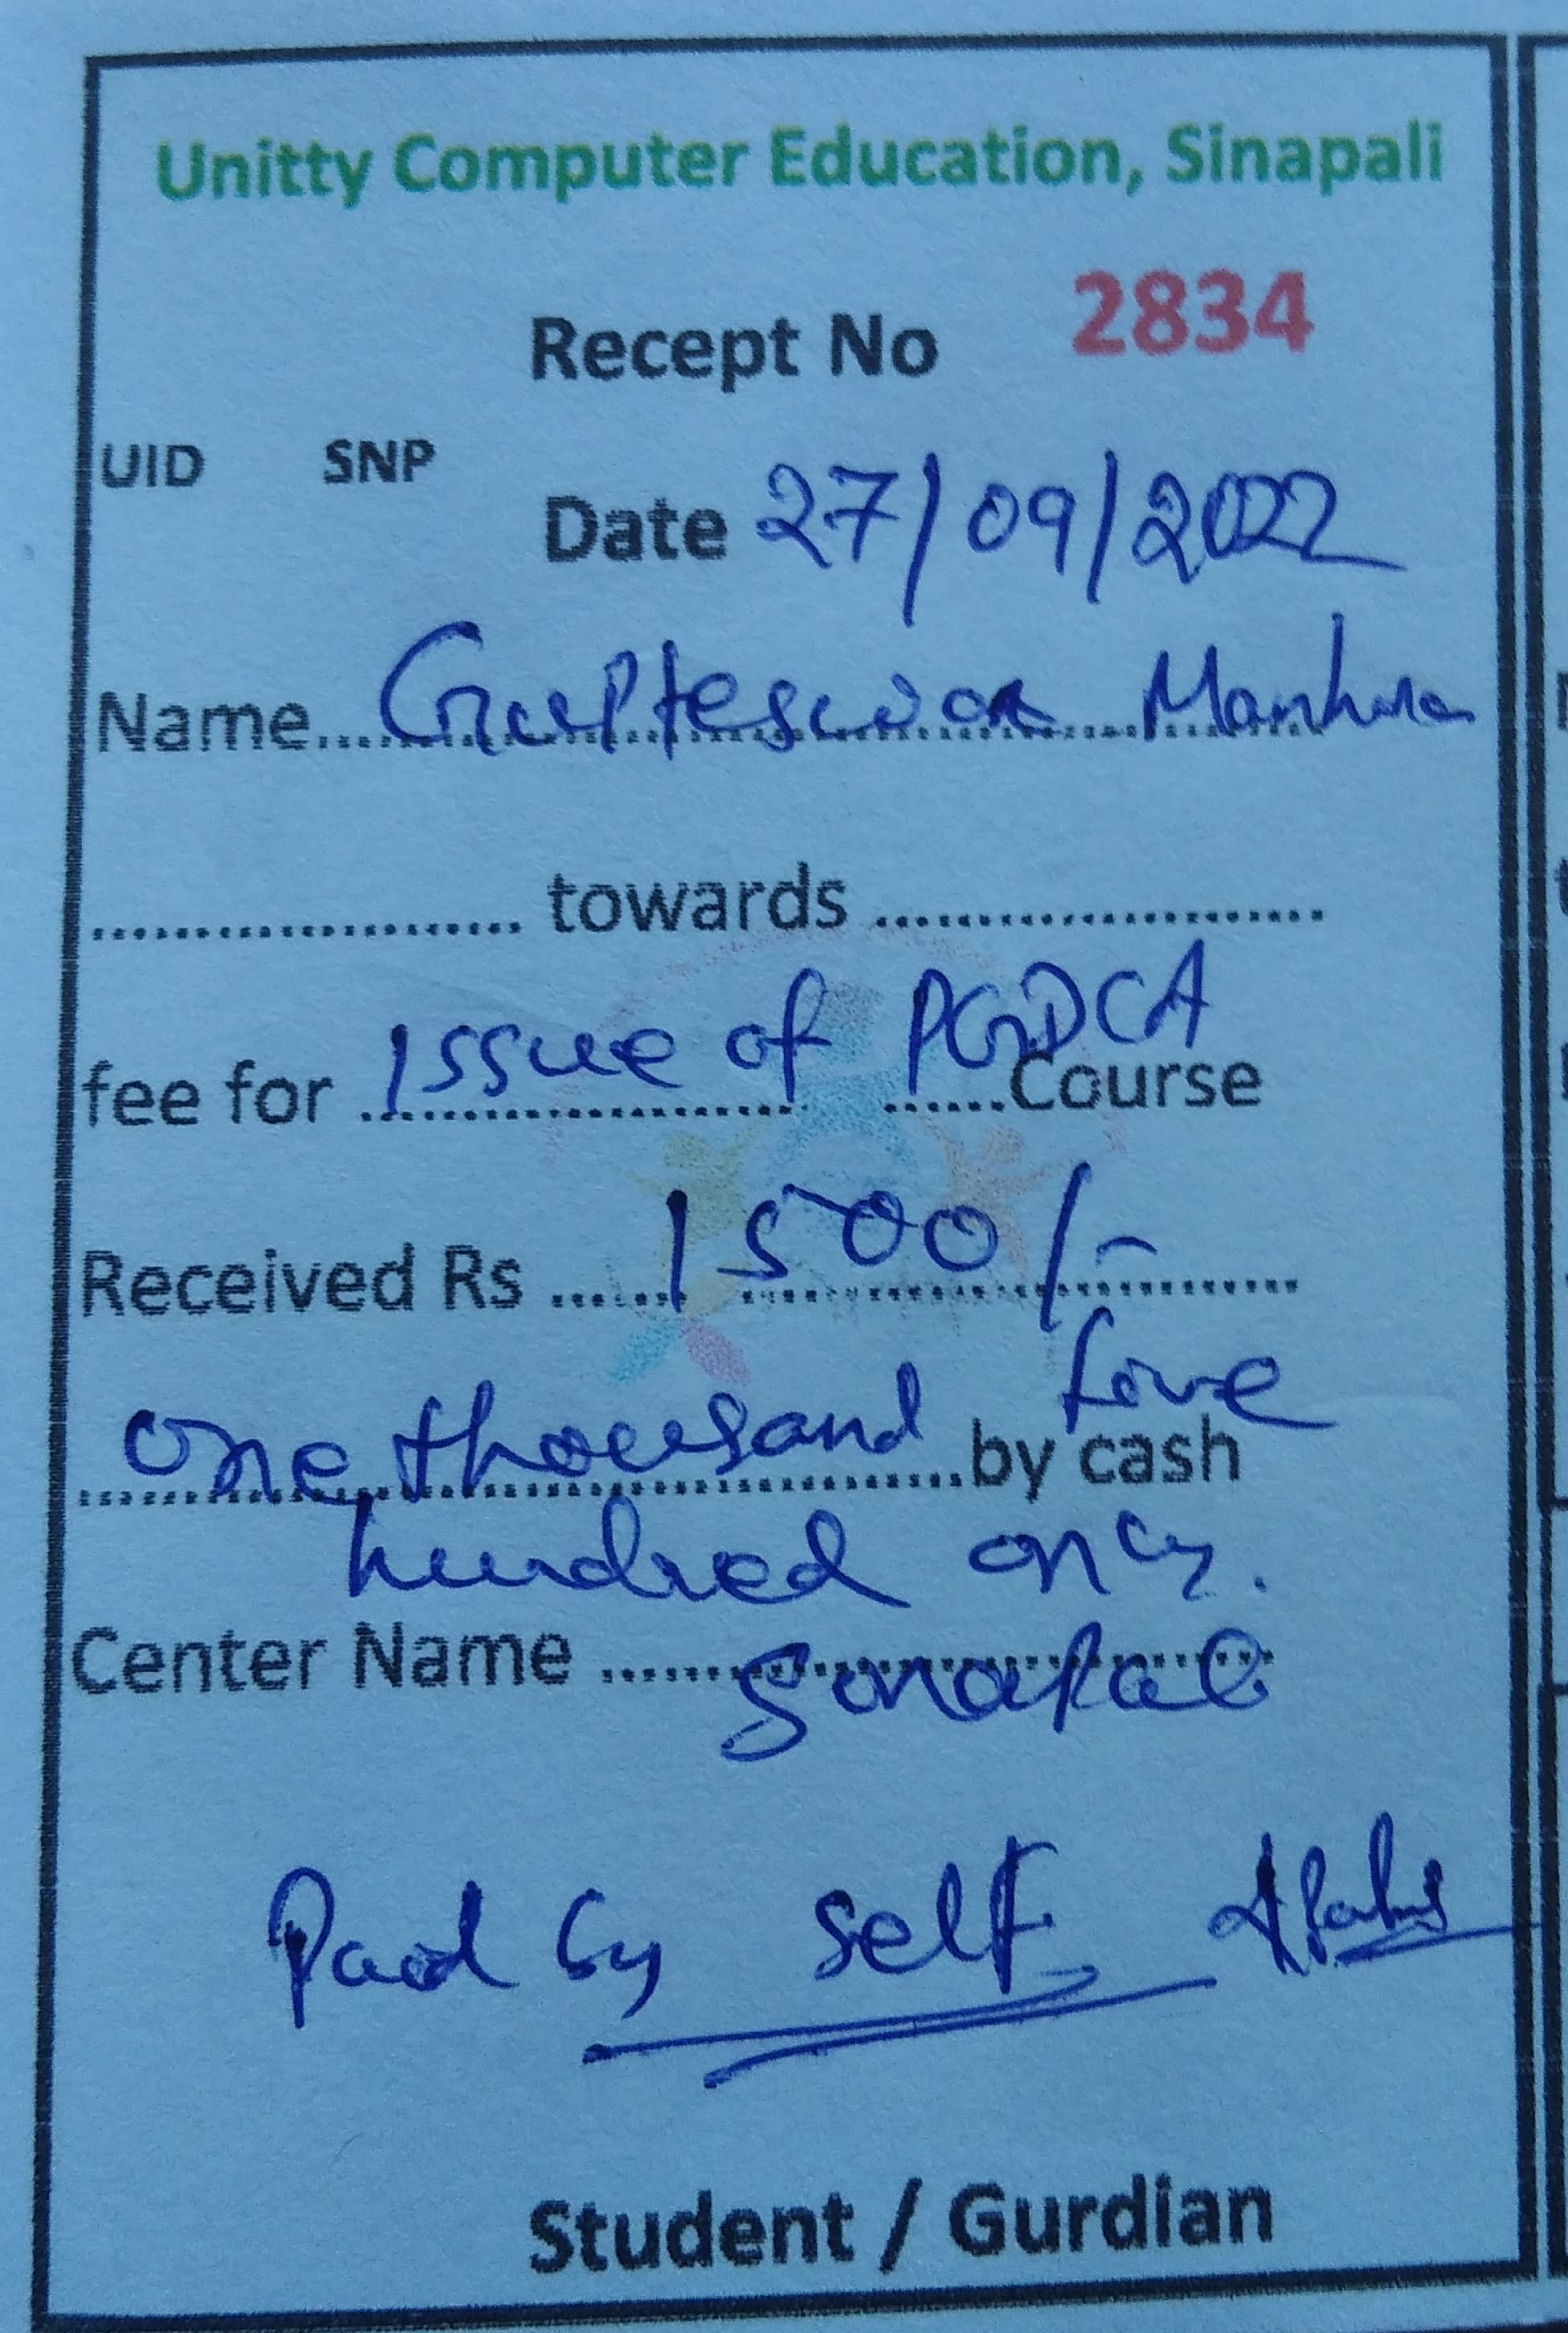 Unitty Computer Education, Sinapali
Recept No 2834
UID SNP
Date 27/09/2022
Name.... Gupteswar Manhira
.................... towards ....................
fee for Issue of PGDCA Course
Received Rs ...... 1500/-
one thousand five by cash
hundred only.
Center Name ...... Sinapali
Paid by self
Student / Gurdian